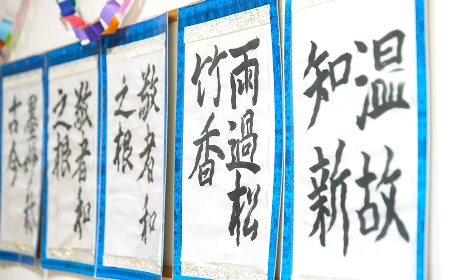 温故
知新
雨過松
竹香
敬者和
之根
敬者和
之根
墨妙
古今